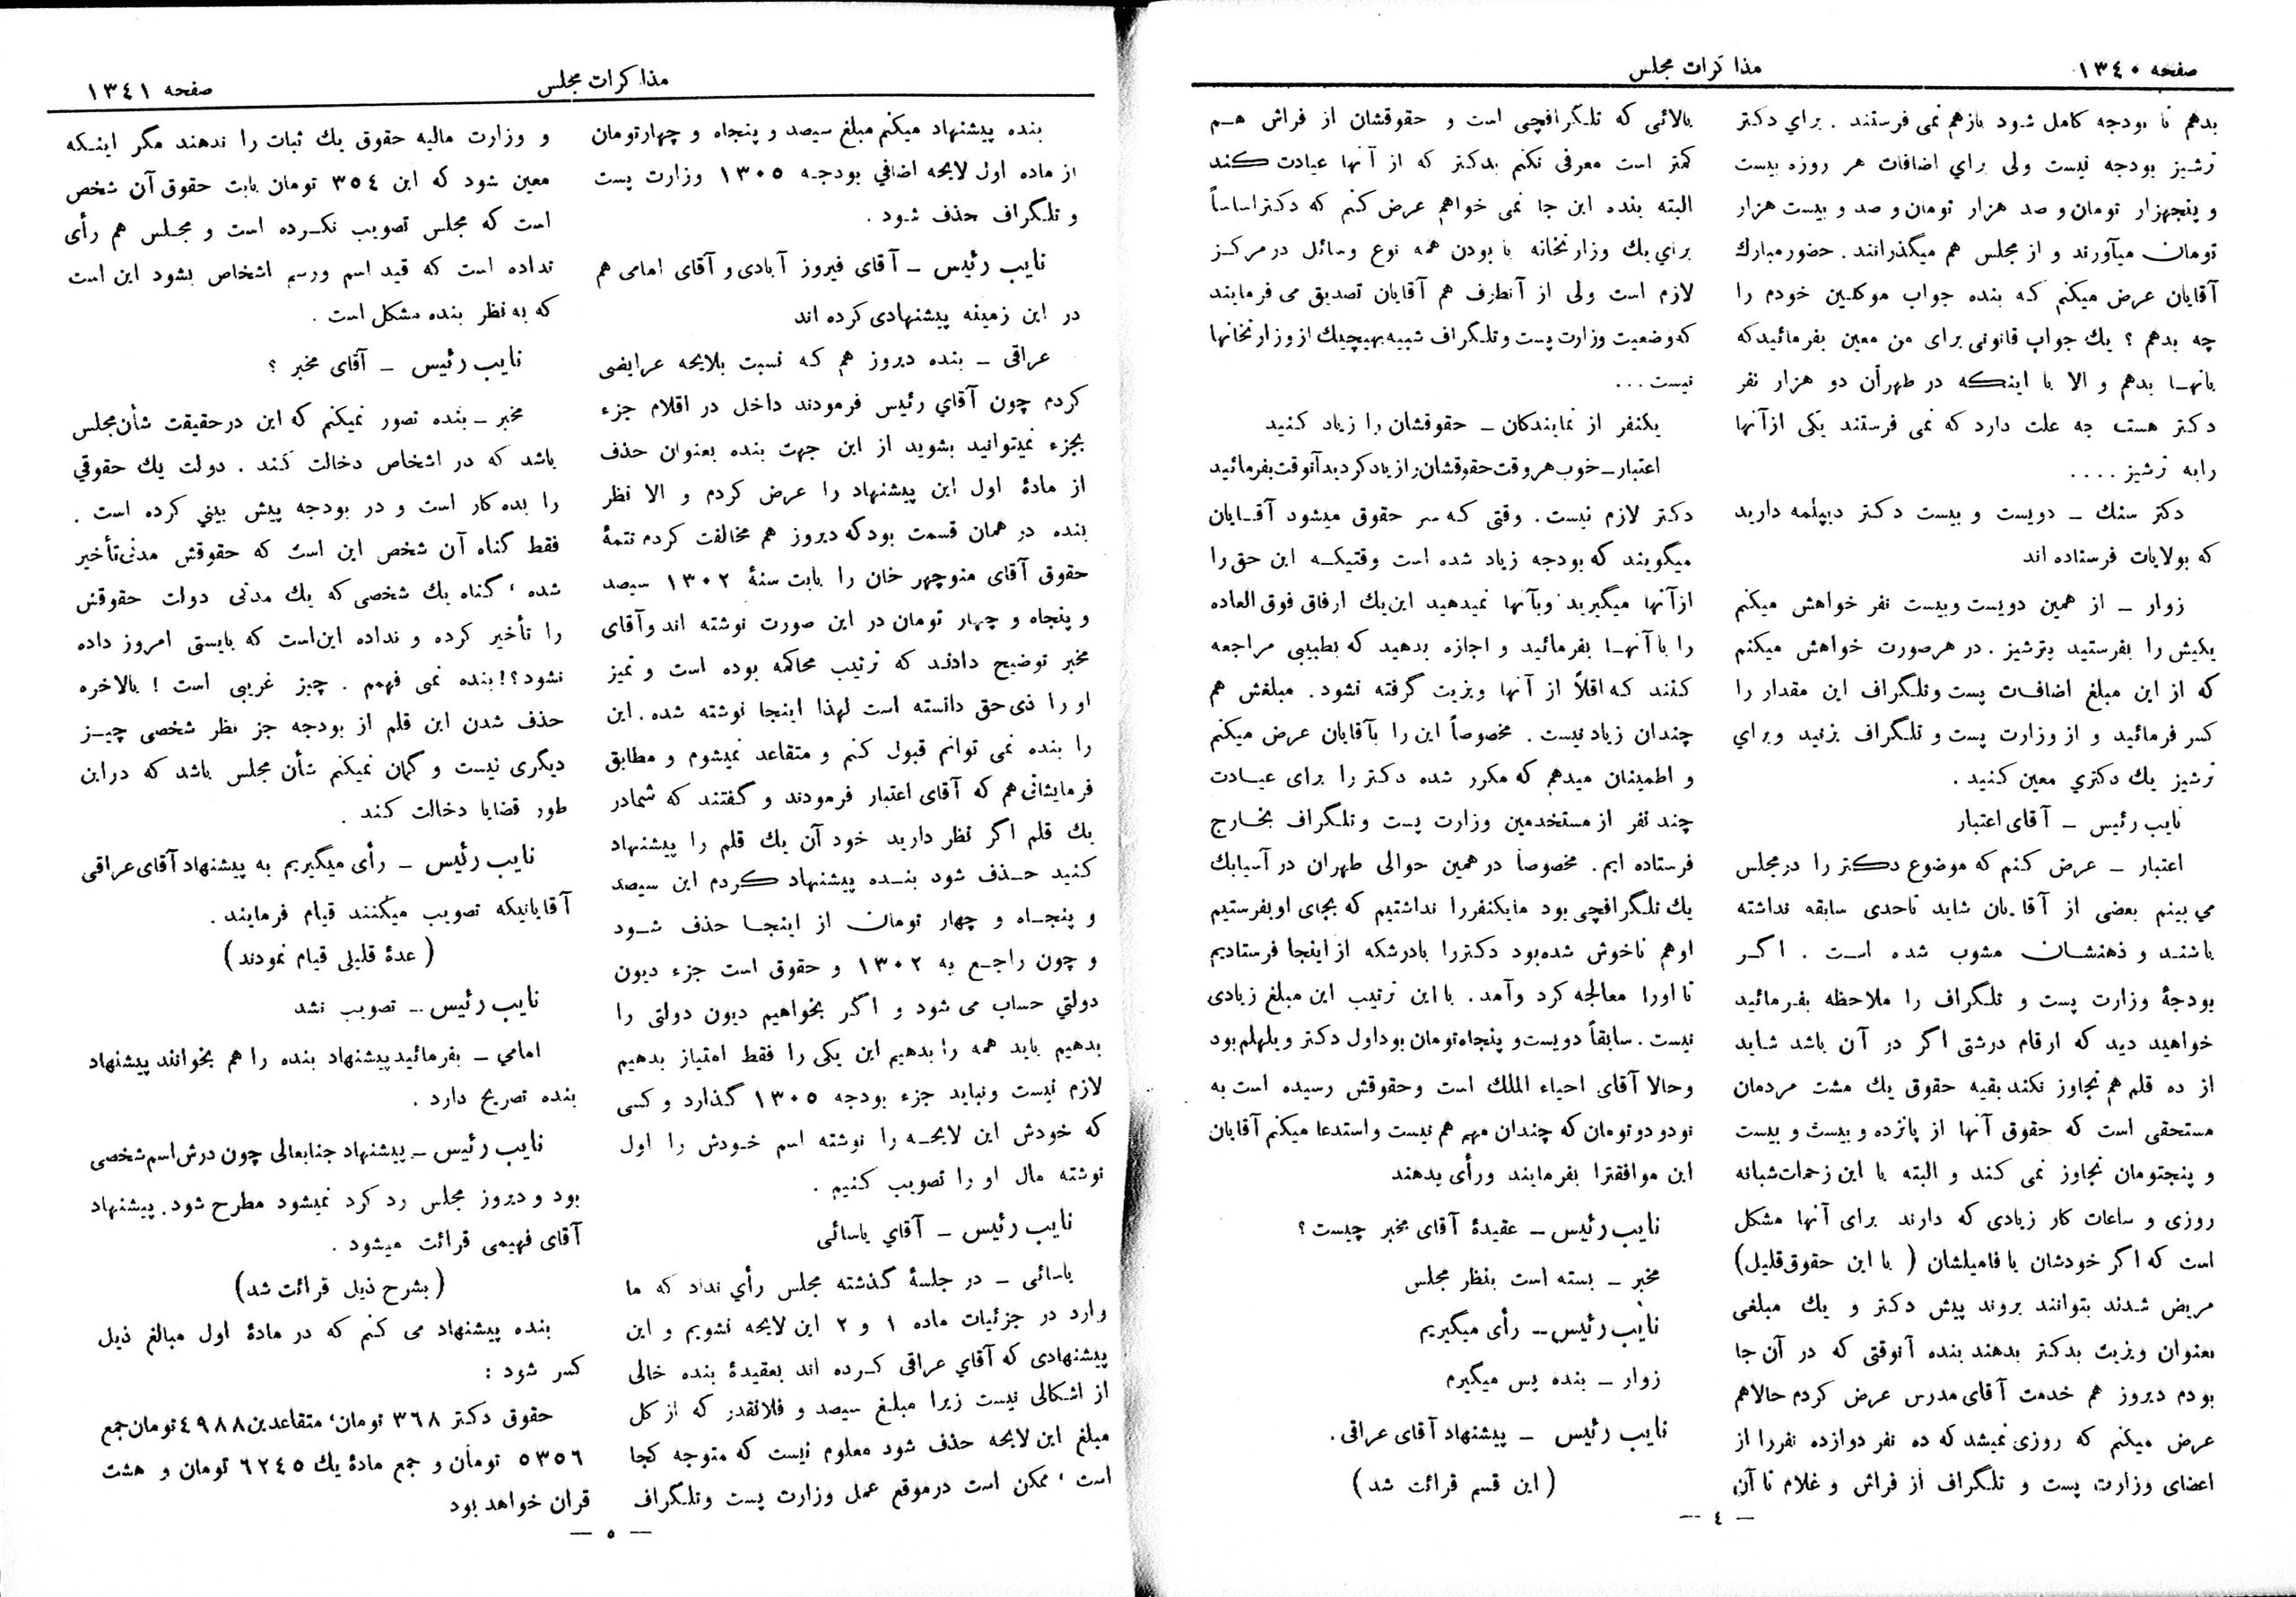 صفحه ۱۳٤۰
مذاکرات مجلس
بدهم تا بودجه کامل شود بازهم نمی فرستند . براي دکتر
ترشیز بودجه نیست ولی براي اضافات هر روزه بیست
و پنجهزار تومان و صد هزار تومان و صد و بیست هزار
تومان میآورند و از مجلس هم میگذرانند . حضور مبارك
آقایان عرض میکنم که بنده جواب موکلین خودم را
چه بدهم ؟ یك جواب قانونی برای من معین بفرمائید که
بانها بدهم و الا با اینکه در طهران دو هزار نفر
دکتر هست چه علت دارد که نمی فرستند یکی از آنها
را به ترشیز . . . .
دکتر سنك ــ دویست و بیست دکتر دیپلمه دارید
که بولایات فرستاده اند
زوار ــ از همین دویست و بیست نفر خواهش میکنم
یکیش را بفرستید بترشیز . در هر صورت خواهش میکنم
که از این مبلغ اضافات پست و تلگراف این مقدار را
کسر فرمائید و از وزارت پست و تلگراف بزنید و براي
ترشیز یك دکتري معین کنید .
نایب رئیس ــ آقای اعتبار
اعتبار ــ عرض کنم که موضوع دکتر را در مجلس
می بینم بعضی از آقایان شاید تاحدی سابقه نداشته
باشند و ذهنشان مشوب شده است . اگر
بودجهٔ وزارت پست و تلگراف را ملاحظه بفرمائید
خواهید دید که ارقام درشتی اگر در آن باشد شاید
از ده قلم هم تجاوز نکند بقیه حقوق یك مشت مردمان
مستحقی است که حقوق آنها از پانزده و بیست و بیست
و پنجتومان تجاوز نمی کند و البته با این زحمات شبانه
روزی و ساعات کار زیادی که دارند برای آنها مشکل
است که اگر خودشان یا فامیلشان ( با این حقوق قلیل )
مریض شدند بتوانند بروند پیش دکتر و یك مبلغی
بعنوان ویزیت بدکتر بدهند بنده آنوقتی که در آن جا
بودم دیروز هم خدمت آقای مدرس عرض کردم حالا هم
عرض میکنم که روزی نمیشد که ده نفر دوازده نفر را از
اعضای وزارت پست و تلگراف از فراش و غلام تا آن
بالائی که تلگرافچی است و حقوقشان از فراش هم
کمتر است معرفی نکنم بدکتر که از آنها عیادت کند
البته بنده این جا نمی خواهم عرض کنم که دکتر اساساً
براي یك وزارتخانه با بودن همه نوع وسائل در مرکز
لازم است ولی از آنطرف هم آقایان تصدیق می فرمایند
که وضعیت وزارت پست و تلگراف شبیه بهیچیك از وزارتخانها
نیست . . .
یکنفر از نمایندکان ــ حقوقشان را زیاد کنید
اعتبار ــ خوب هر وقت حقوقشان را زیاد کردید آنوقت بفرمائید
دکتر لازم نیست . وقتی که سر حقوق میشود آقایان
میگویند که بودجه زیاد شده است وقتیکه این حق را
از آنها میگیرید و بآنها نمیدهید این یك ارفاق فوق العاده
را با آنها بفرمائید و اجازه بدهید که بطبیبی مراجعه
کنند که اقلاً از آنها ویزیت گرفته نشود . مبلغش هم
چندان زیاد نیست . مخصوصاً این را بآقایان عرض میکنم
و اطمینان میدهم که مکرر شده دکتر را برای عیادت
چند نفر از مستخدمین وزارت پست و تلگراف بخارج
فرستاده ایم . مخصوصاً در همین حوالی طهران در آسیابك
یك تلگرافچی بود ما یکنفر را نداشتیم که بجای او بفرستیم
او هم ناخوش شده بود دکتر را با درشکه از اینجا فرستادیم
تا اورا معالجه کرد و آمد . با این ترتیب این مبلغ زیادی
نیست . سابقاً دویست و پنجاه تومان بود اول دکتر ویلهلم بود
و حالا آقای احیاء الملك است و حقوقش رسیده است به
نود و دو تومان که چندان مهم هم نیست و استدعا میکنم آقایان
این موافقترا بفرمایند و رأی بدهند
نایب رئیس ــ عقیدهٔ آقای مخبر چیست ؟
مخبر ــ بسته است بنظر مجلس
نایب رئیس ــ رأی میگیریم
زوار ــ بنده پس میگیرم
نایب رئیس ــ پیشنهاد آقای عراقی .
( این قسم قرائت شد )
— ٤ —
مذاکرات مجلس
صفحه ۱۳٤۱
بنده پیشنهاد میکنم مبلغ سیصد و پنجاه و چهار تومان
از ماده اول لایحه اضافي بودجه ۱۳۰٥ وزارت پست
و تلگراف حذف شود .
نایب رئیس ــ آقای فیروز آبادی و آقای امامی هم
در این زمینه پیشنهادی کرده اند
عراقی ــ بنده دیروز هم که نسبت بلایحه عرایضی
کردم چون آقاي رئیس فرمودند داخل در اقلام جزء
بجزء نمیتوانید بشوید از این جهت بنده بعنوان حذف
از مادهٔ اول این پیشنهاد را عرض کردم و الا نظر
بنده در همان قسمت بود که دیروز هم مخالفت کردم تتمهٔ
حقوق آقای منوچهر خان را بابت سنهٔ ۱۳۰۲ سیصد
و پنجاه و چهار تومان در این صورت نوشته اند و آقای
مخبر توضیح دادند که ترتیب محاکمه بوده است و تمیز
او را ذی حق دانسته است لهذا اینجا نوشته شده . این
را بنده نمی توانم قبول کنم و متقاعد نمیشوم و مطابق
فرمایشاتی هم که آقای اعتبار فرمودند و گفتند که شما در
یك قلم اگر نظر دارید خود آن یك قلم را پیشنهاد
کنید حذف شود بنده پیشنهاد کردم این سیصد
و پنجاه و چهار تومان از اینجا حذف شود
و چون راجع به ۱۳۰۲ و حقوق است جزء دیون
دولتي حساب می شود و اگر بخواهیم دیون دولتی را
بدهیم باید همه را بدهیم این یکی را فقط امتیاز بدهیم
لازم نیست و نباید جزء بودجه ۱۳۰٥ گذارد و کسی
که خودش این لایحه را نوشته اسم خودش را اول
نوشته مال او را تصویب کنیم .
نایب رئیس ــ آقاي یاسائی
یاسائی ــ در جلسهٔ گذشته مجلس رأي نداد که ما
وارد در جزئیات ماده ۱ و ۲ این لایحه نشویم و این
پیشنهادی که آقاي عراقی کرده اند بعقیدهٔ بنده خالی
از اشکالی نیست زیرا مبلغ سیصد و فلانقدر که از کل
مبلغ این لایحه حذف شود معلوم نیست که متوجه کجا
است ، ممکن است در موقع عمل وزارت پست و تلگراف
و وزارت مالیه حقوق یك ثبات را ندهند مگر اینکه
معین شود که این ۳٥٤ تومان بابت حقوق آن شخص
است که مجلس تصویب نکرده است و مجلس هم رأی
نداده است که قید اسم ورسم اشخاص بشود این است
که به نظر بنده مشکل است .
نایب رئیس ــ آقای مخبر ؟
مخبر ــ بنده تصور نمیکنم که این در حقیقت شأن مجلس
باشد که در اشخاص دخالت کند . دولت یك حقوقي
را بده کار است و در بودجه پیش بیني کرده است .
فقط گناه آن شخص این است که حقوقش مدتی تأخیر
شده ، گناه یك شخصی که یك مدتی دولت حقوقش
را تأخیر کرده و نداده این است که بایستی امروز داده
نشود ؟! بنده نمی فهمم . چیز غریبی است ! بالاخره
حذف شدن این قلم از بودجه جز نظر شخصی چیز
دیگری نیست و گمان نمیکنم شأن مجلس باشد که در این
طور قضایا دخالت کند .
نایب رئیس ــ رأی میگیریم به پیشنهاد آقای عراقی
آقایانیکه تصویب میکنند قیام فرمایند .
( عدهٔ قلیلی قیام نمودند )
نایب رئیس ــ تصویب نشد
امامي ــ بفرمائید پیشنهاد بنده را هم بخوانند پیشنهاد
بنده تصریح دارد .
نایب رئیس ــ پیشنهاد جنابعالی چون درش اسم شخصی
بود و دیروز مجلس رد کرد نمیشود مطرح شود . پیشنهاد
آقای فهیمی قرائت میشود .
( بشرح ذیل قرائت شد )
بنده پیشنهاد می کنم که در مادهٔ اول مبالغ ذیل
کسر شود :
حقوق دکتر ۳٦۸ تومان ، متقاعدین ٤۹۸۸ تومان جمع
٥۳٥٦ تومان و جمع مادهٔ یك ٦۲٤٥ تومان و هشت
قران خواهد بود
— ٥ —